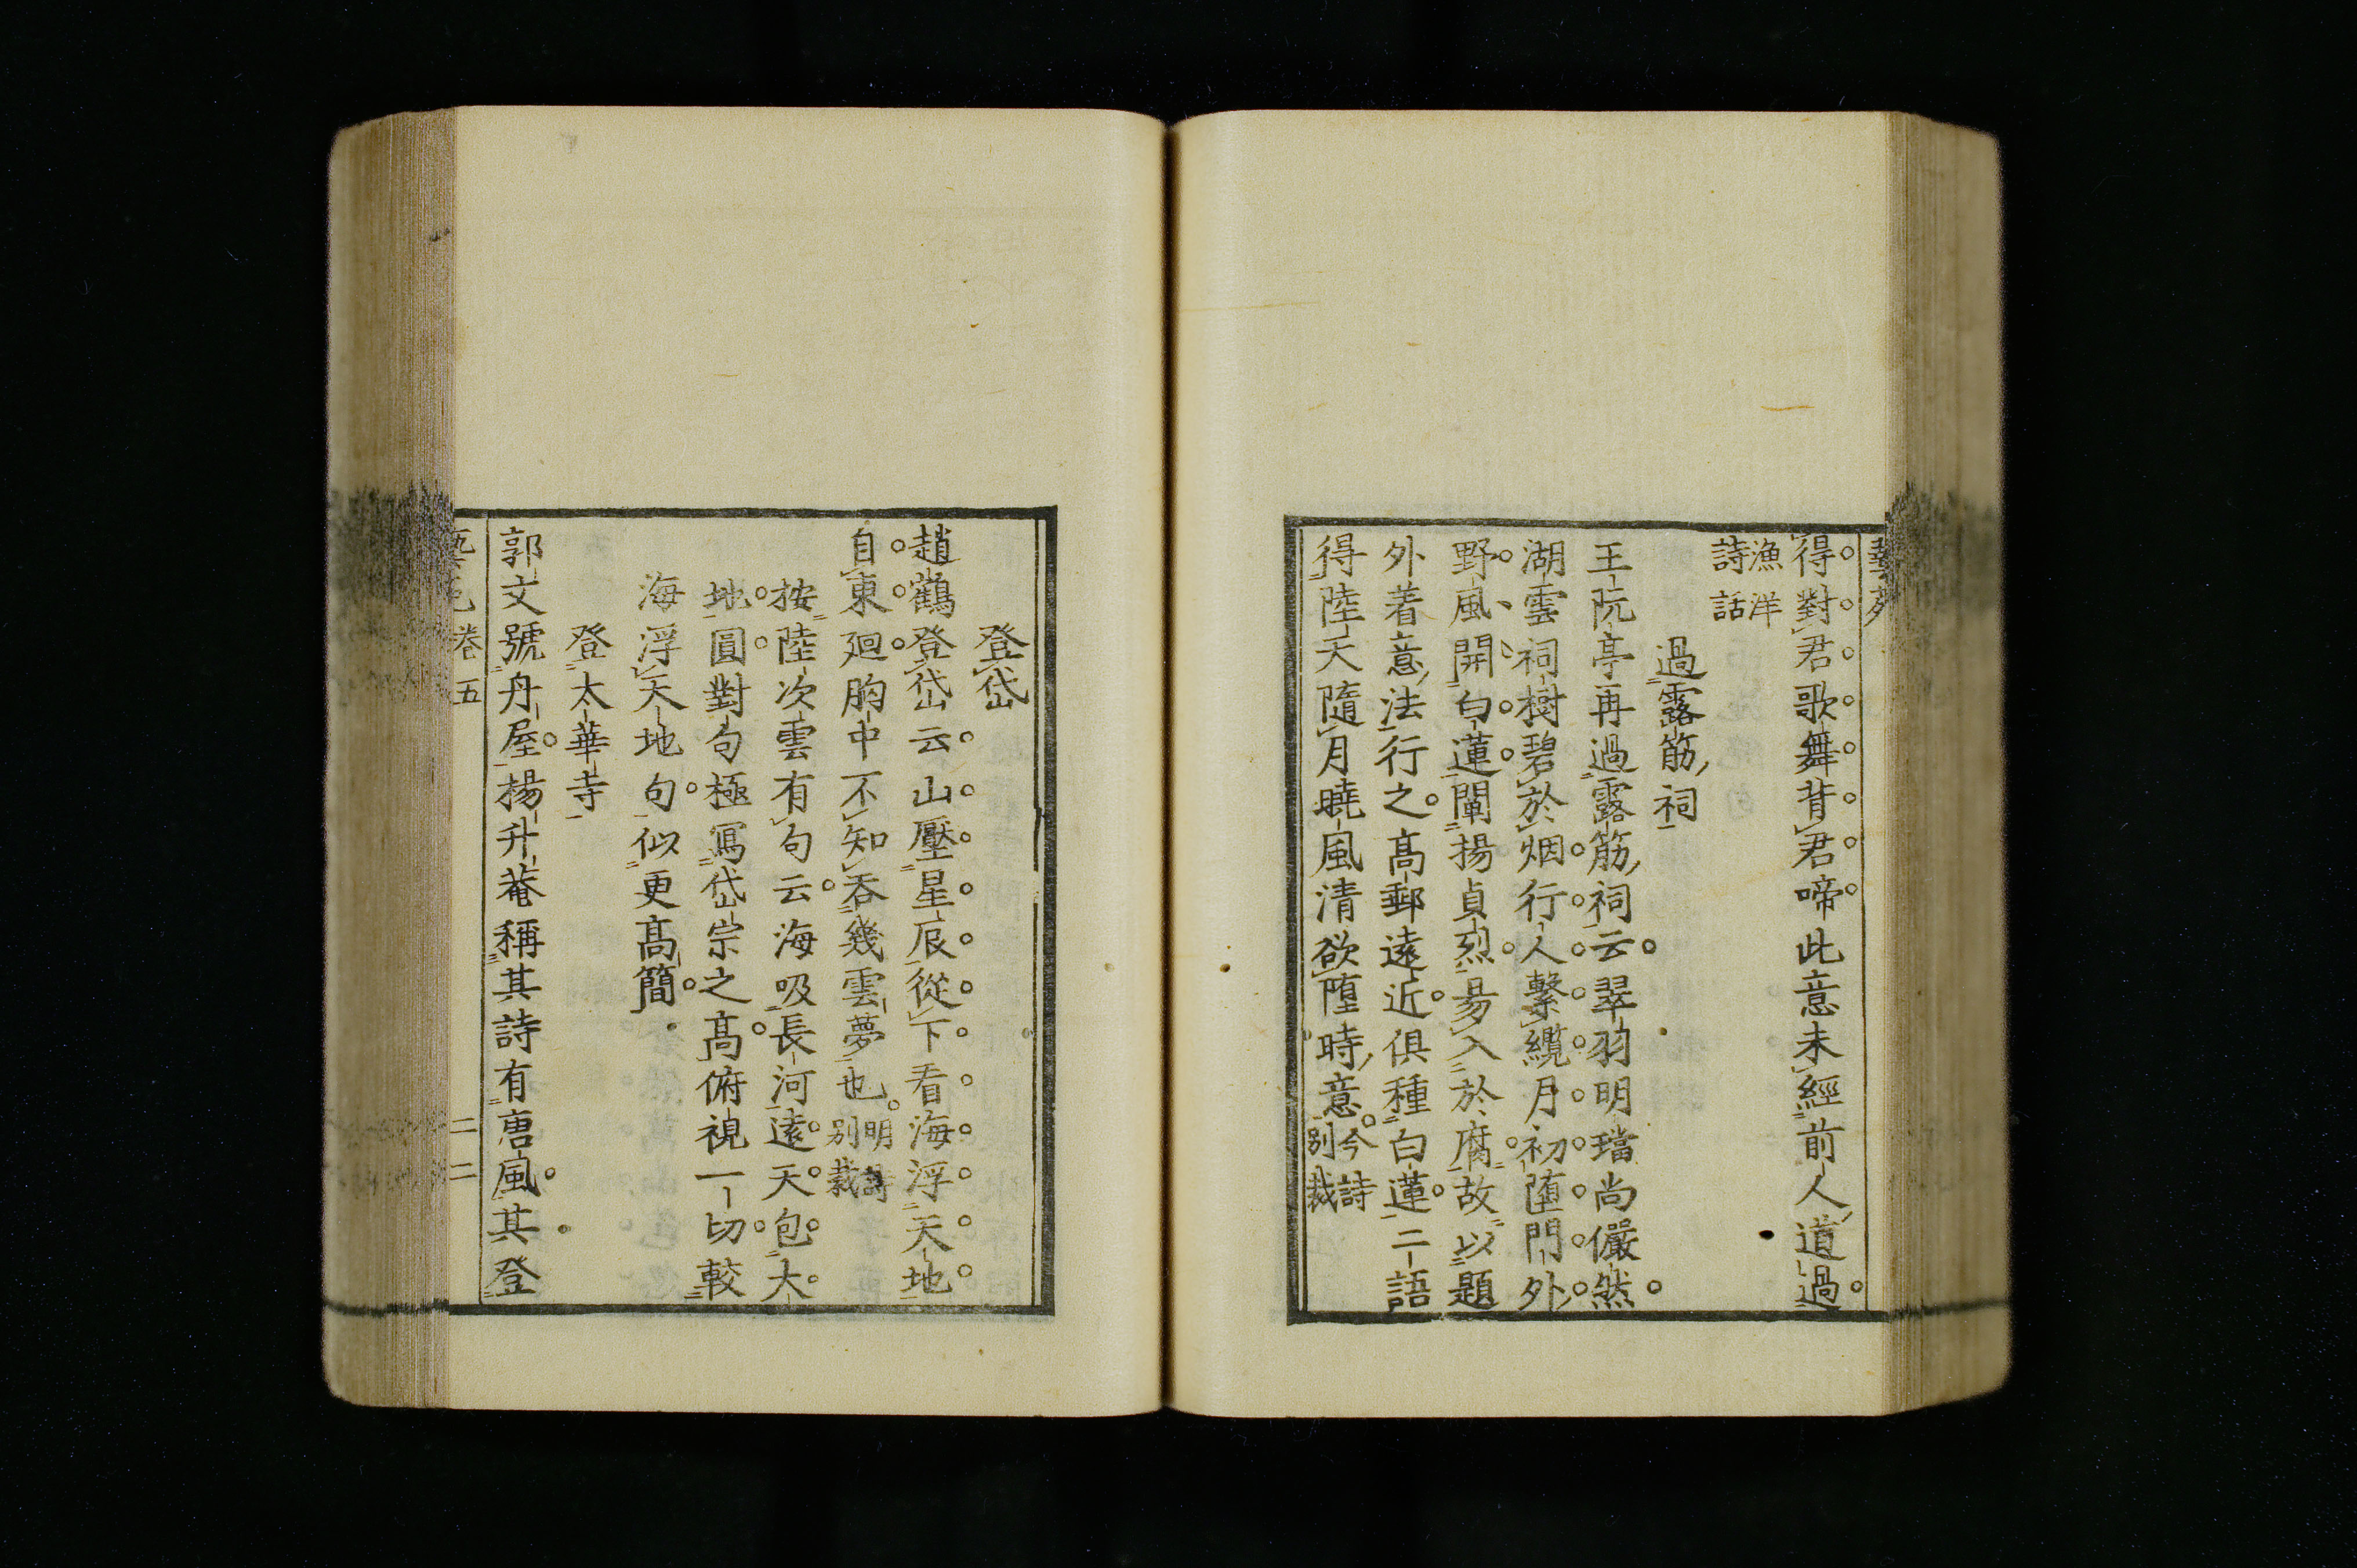 得對君歌舞背君啼此意未經前人道過
漁洋
詩話
過露筋祠
王阮亭再過露筋祠云翠羽明璫尚儼然
湖雲祠樹碧於烟行人繫纜月初墮門外
野風開白蓮闡揚貞烈易入於腐故以題
外着意法行之高郵遠近俱種白蓮二語
得陸天隨月曉風清欲墮時意
今詩
別裁
登岱
趙鶴登岱云山壓星辰從下看海浮天地
自東廻胸中不知吞幾雲夢也
明詩
別裁
按陸次雲有句云海吸長河遠天包大
地圓對句極寫岱宗之高俯視一切較
海浮天地句似更高簡
登太華寺
郭文號舟屋楊升菴稱其詩有唐風其登
卷五
二二